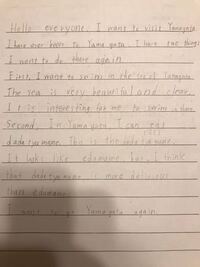 Hello everyone. I want to visit Yamagata
I have ever been to Yamagata. I have two things
I want to do there again.
First, I want to swim in the sea of Yamagata.
The sea is very beautiful and clear.
It is interesting for me to swim in there.
Second, In Yamagata, I can eat
dadatyamame. This is the dadatyamame.
It looks like edamame, but I think
that dadatyamame is more delicious
than edamame.
I want to go Yamagata again.